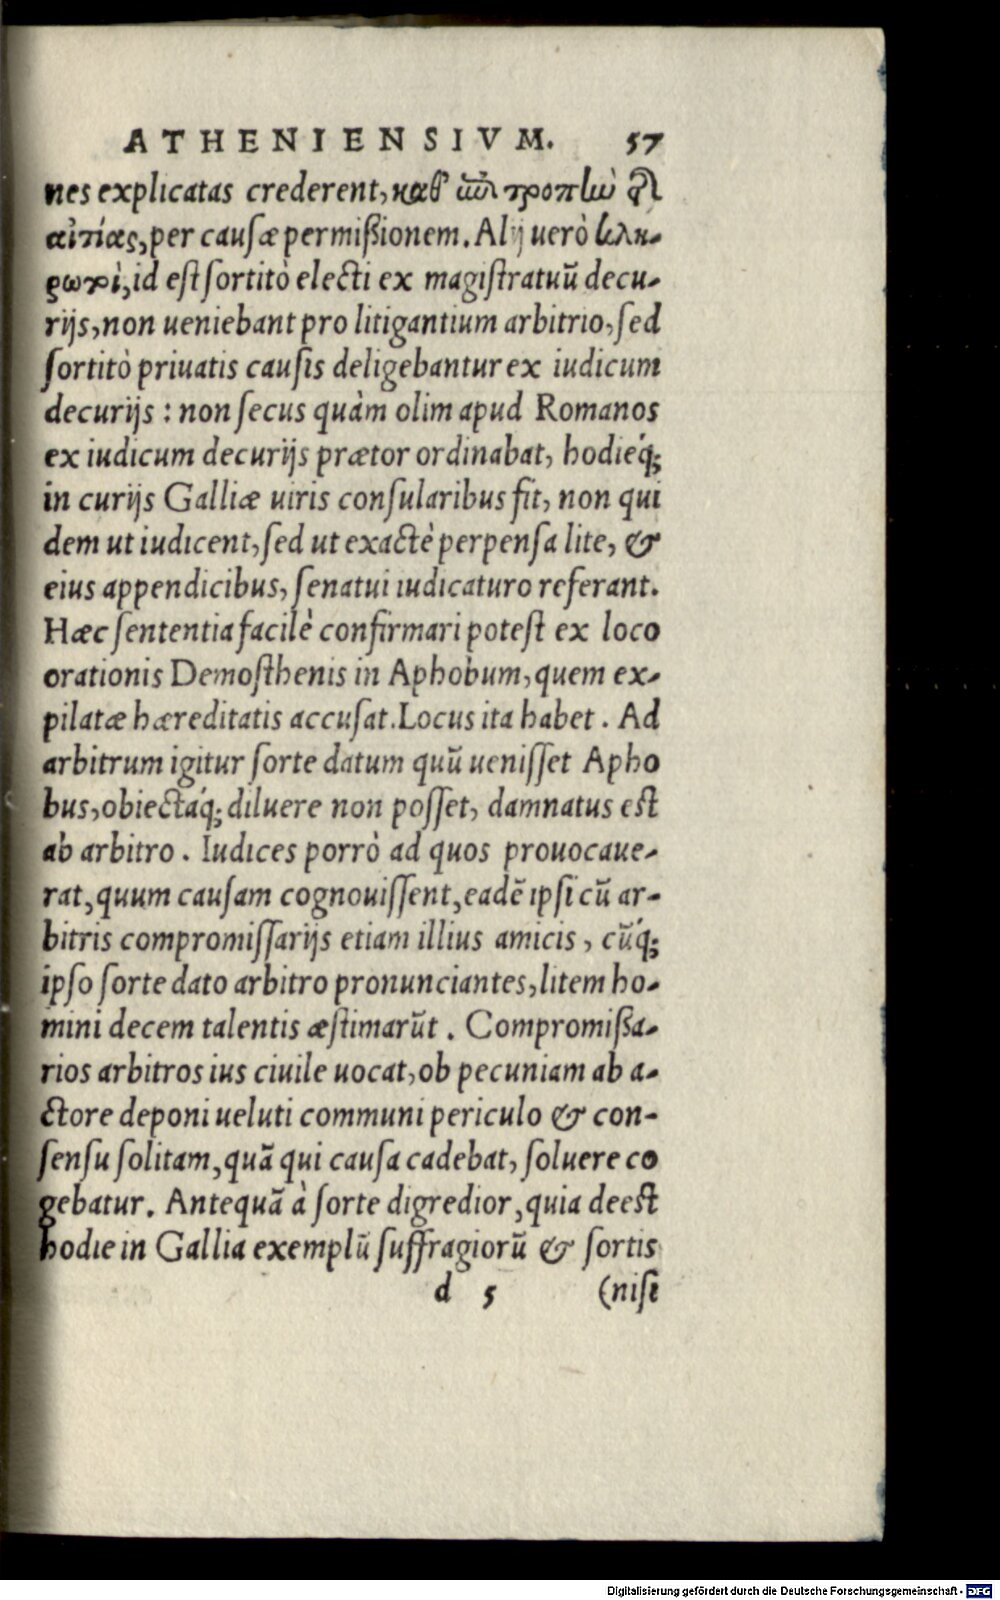 ATHENIENSIVM. 57
nes explicatas crederent, καθ' ἐπιτροπὴν τῆς
αἰτίας, per causæ permißionem. Alij uerò κλη-
ρωτοὶ, id est sortitò electi ex magistratuū decu-
rijs, non ueniebant pro litigantium arbitrio, sed
sortitò priuatis causis deligebantur ex iudicum
decurijs : non secus quàm olim apud Romanos
ex iudicum decurijs prætor ordinabat, hodieq́;
in curijs Galliæ uiris consularibus fit, non qui
dem ut iudicent, sed ut exactè perpensa lite, &
eius appendicibus, senatui iudicaturo referant.
Hæc sententia facilè confirmari potest ex loco
orationis Demosthenis in Aphobum, quem ex-
pilatæ hæreditatis accusat. Locus ita habet . Ad
arbitrum igitur sorte datum quū uenisset Apho
bus, obiectaq́; diluere non posset, damnatus est
ab arbitro . Iudices porrò ad quos prouocaue-
rat, quum causam cognouissent, eadē ipsi cū ar-
bitris compromissarijs etiam illius amicis , cūq́;
ipso sorte dato arbitro pronunciantes, litem ho-
mini decem talentis æstimarūt . Compromißa-
rios arbitros ius ciuile uocat, ob pecuniam ab a-
ctore deponi ueluti communi periculo & con-
sensu solitam, quā qui causa cadebat, soluere co
gebatur. Antequā à sorte digredior, quia deest
hodie in Gallia exemplū suffragiorū & sortis
d 5 (nisi
Digitalisierung gefördert durch die Deutsche Forschungsgemeinschaft - DFG